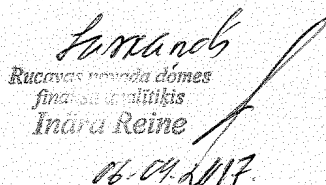 Saskaņots
Rucavas novada domes
finanšu analītiķis
Ināra Reine
06.09.2017.